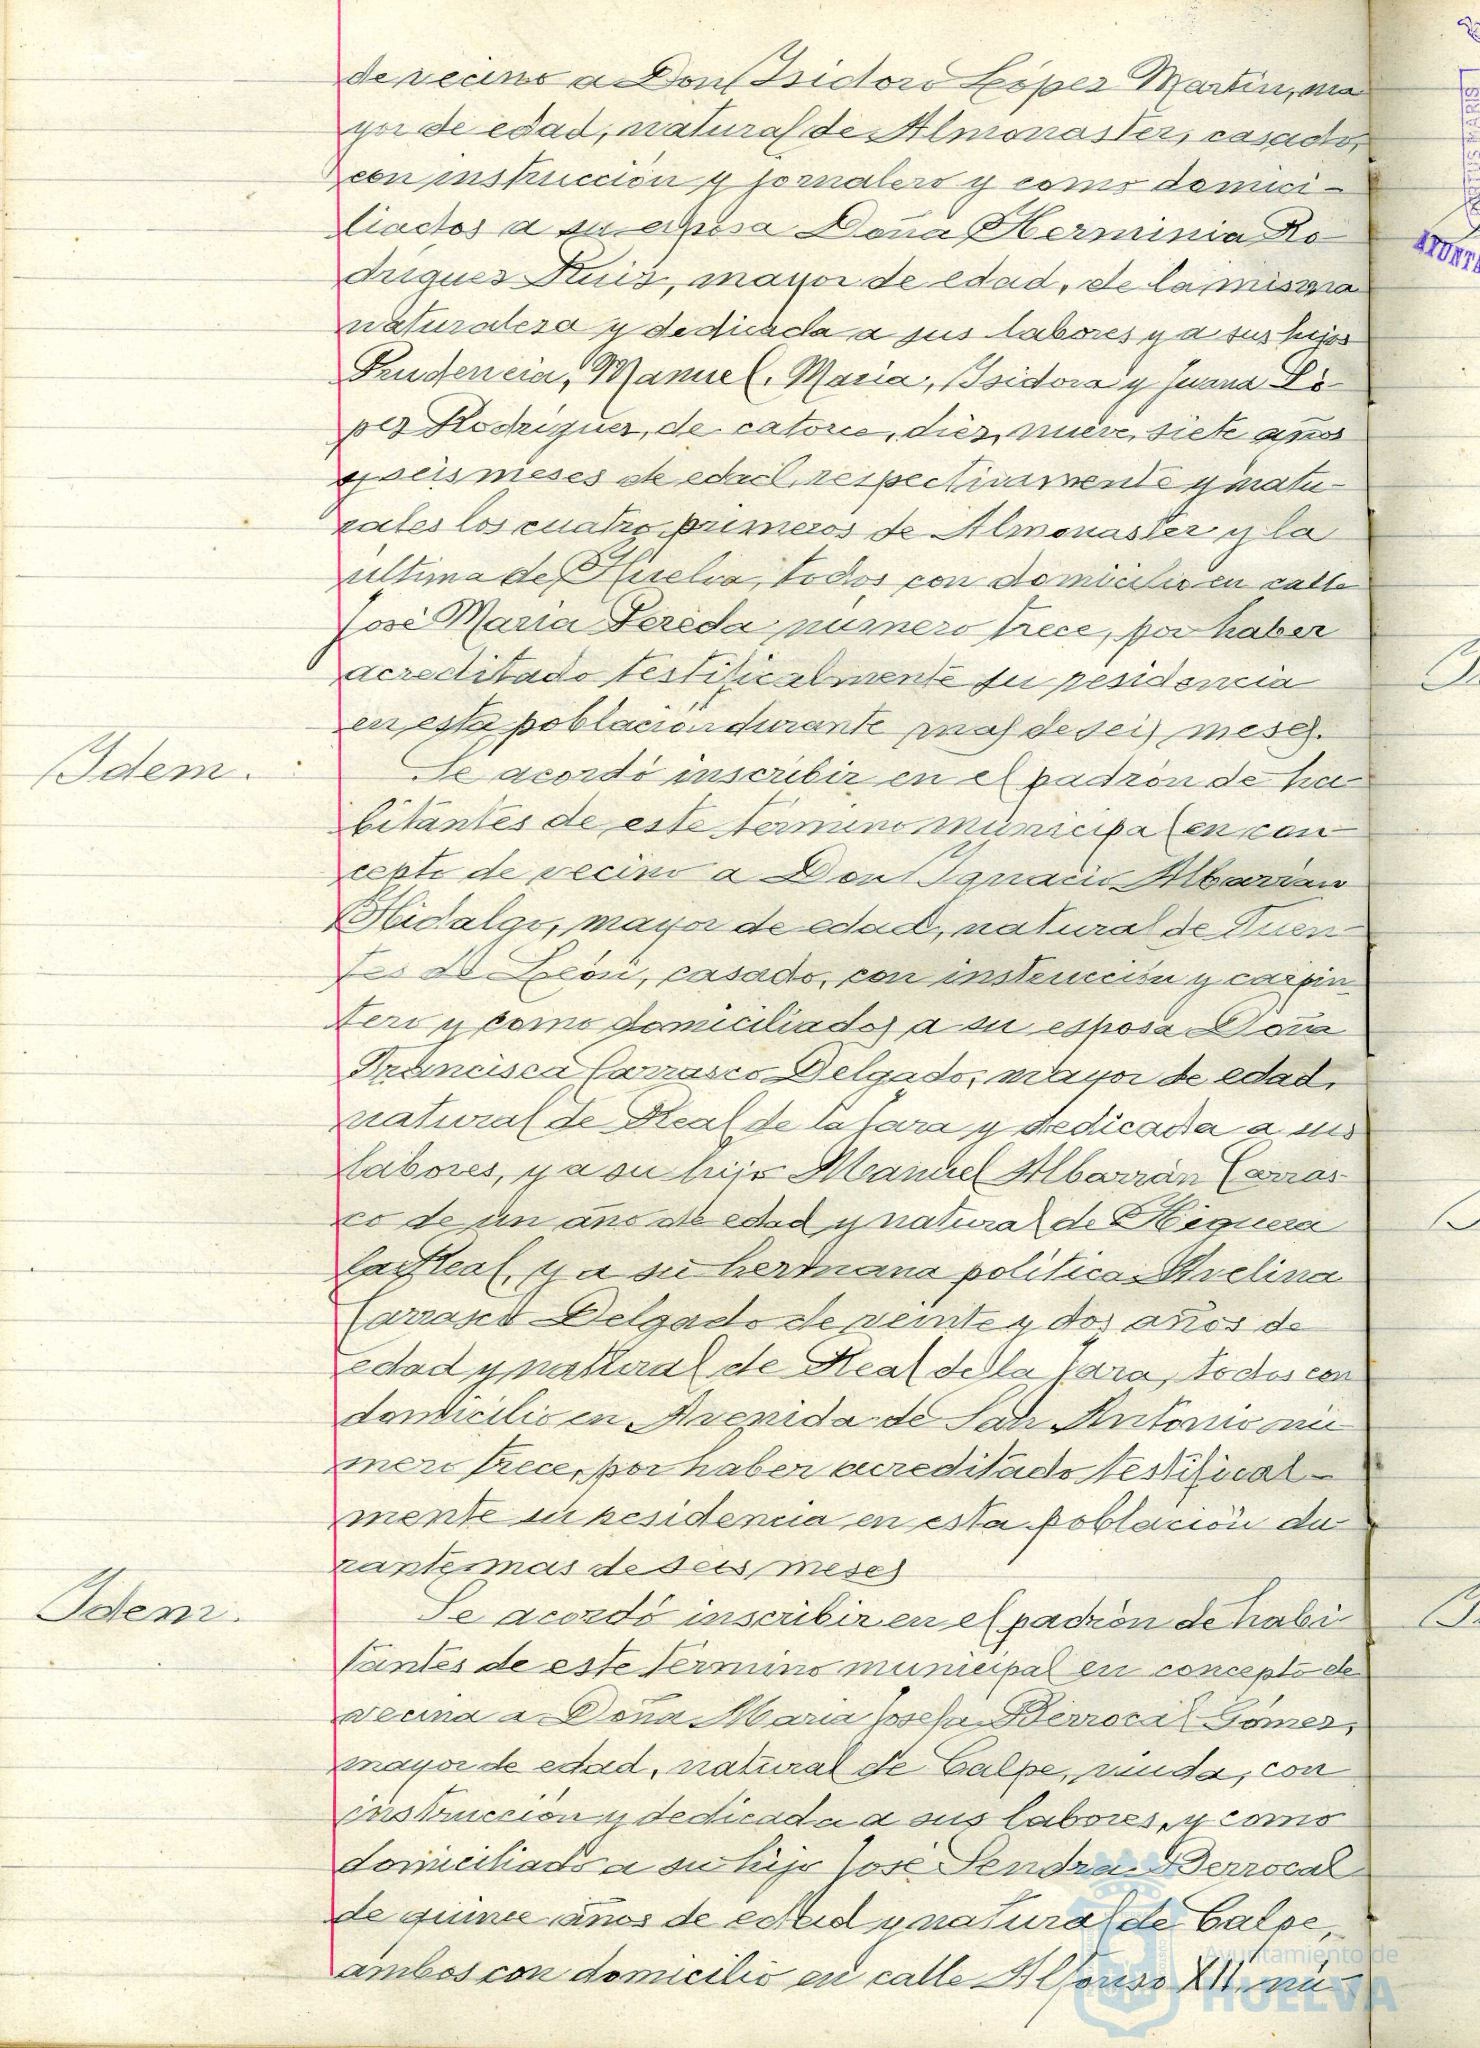 de vecino a Don Isidoro López Martín, ma
yor de edad, natural de Almonaster, casado,
con instrucción y jornalero y como domici-
liados a su esposa Doña Herminia Ro
driguez Ruiz, mayor de edad, de la misma
naturaleza y dedicada a sus labores y a sus hijos
Prudencia, Manuel, Maria, Isidora y Juana Ló-
pez Rodríguez, de catorce, diez, nueve, siete años
y seis meses de edad, respectivamente y natu-
rales los cuatro primeros de Almonaster y la
última de Huelva, todos con domicilio en calle
José Maria Pereda número trece, por haber
acreditado testificalmente su residencia
en esta población durante mas de seis meses.
Idem.
Se acordó inscribir en el padrón de ha-
bitantes de este término municipal en con-
cepto de vecino a Don Ignacio Albarrán
Hidalgo, mayor de edad, natural de Fuen-
tes de León, casado, con instrucción y carpin
tero y como domiciliados a su esposa Doña
Francisca Carrasco Delgado, mayor de edad,
natural de Real de la Jara y dedicada a sus
labores, y a su hijo Manuel Albarrán Carras-
co de un año de edad y natural de Higuera
la Real, y a su hermana política Avelina
Carrasco Delgado de veinte y dos años de
edad y natural de Real de la Jara, todos con
domicilio en Avenida de San Antonio nú
mero trece, por haber acreditado testifical-
mente su residencia en esta población du
rante mas de seis meses
Idem.
Se acordó inscribir en el padrón de habi
tantes de este término municipal en concepto de
vecina a Doña Maria Josefa Berrocal Gómez,
mayor de edad, natural de Calpe, viuda, con
instrucción y dedicada a sus labores, y como
domiciliado a su hijo José Sendra Berrocal
de quince años de edad y natural de Calpe,
ambos con domicilio en calle Alfonso XII, nú-
AYUNTA
Ayuntamiento de
HUELVA